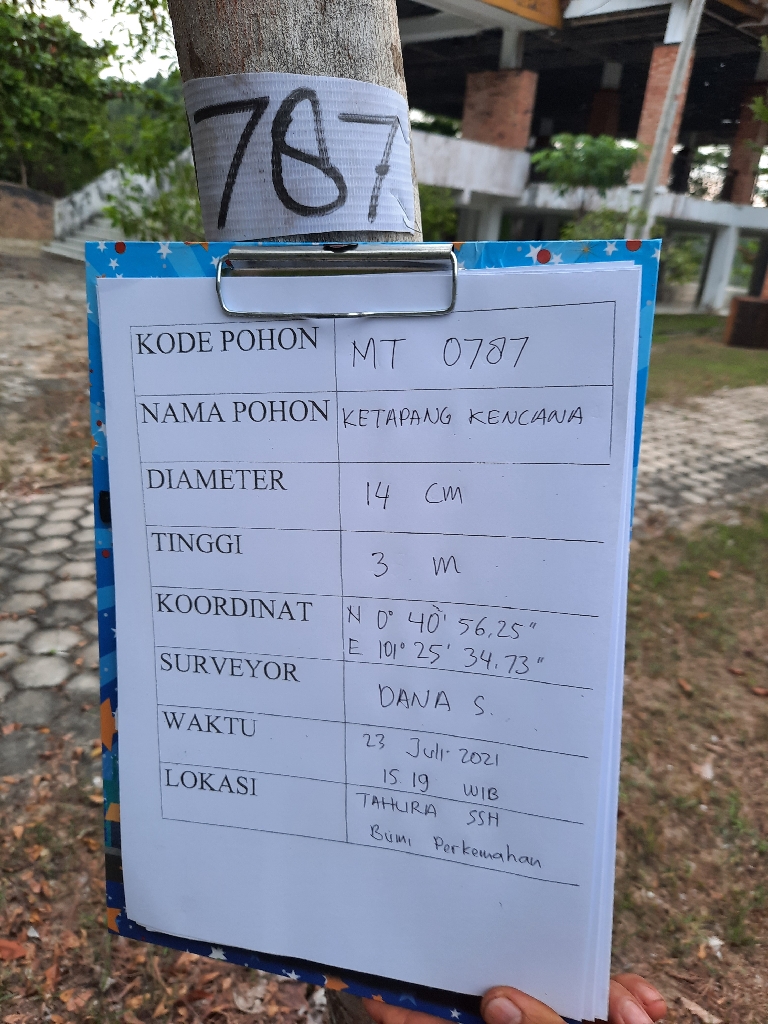 787
KODE POHON MT 0787
NAMA POHON KETAPANG KENCANA
DIAMETER 14 cm
TINGGI 3 m
KOORDINAT N 0° 40' 56,25"
E 101° 25' 34.73"
SURVEYOR DANA S.
WAKTU 23 Juli 2021
15.19 WIB
LOKASI TAHURA SSH
Bumi Perkemahan